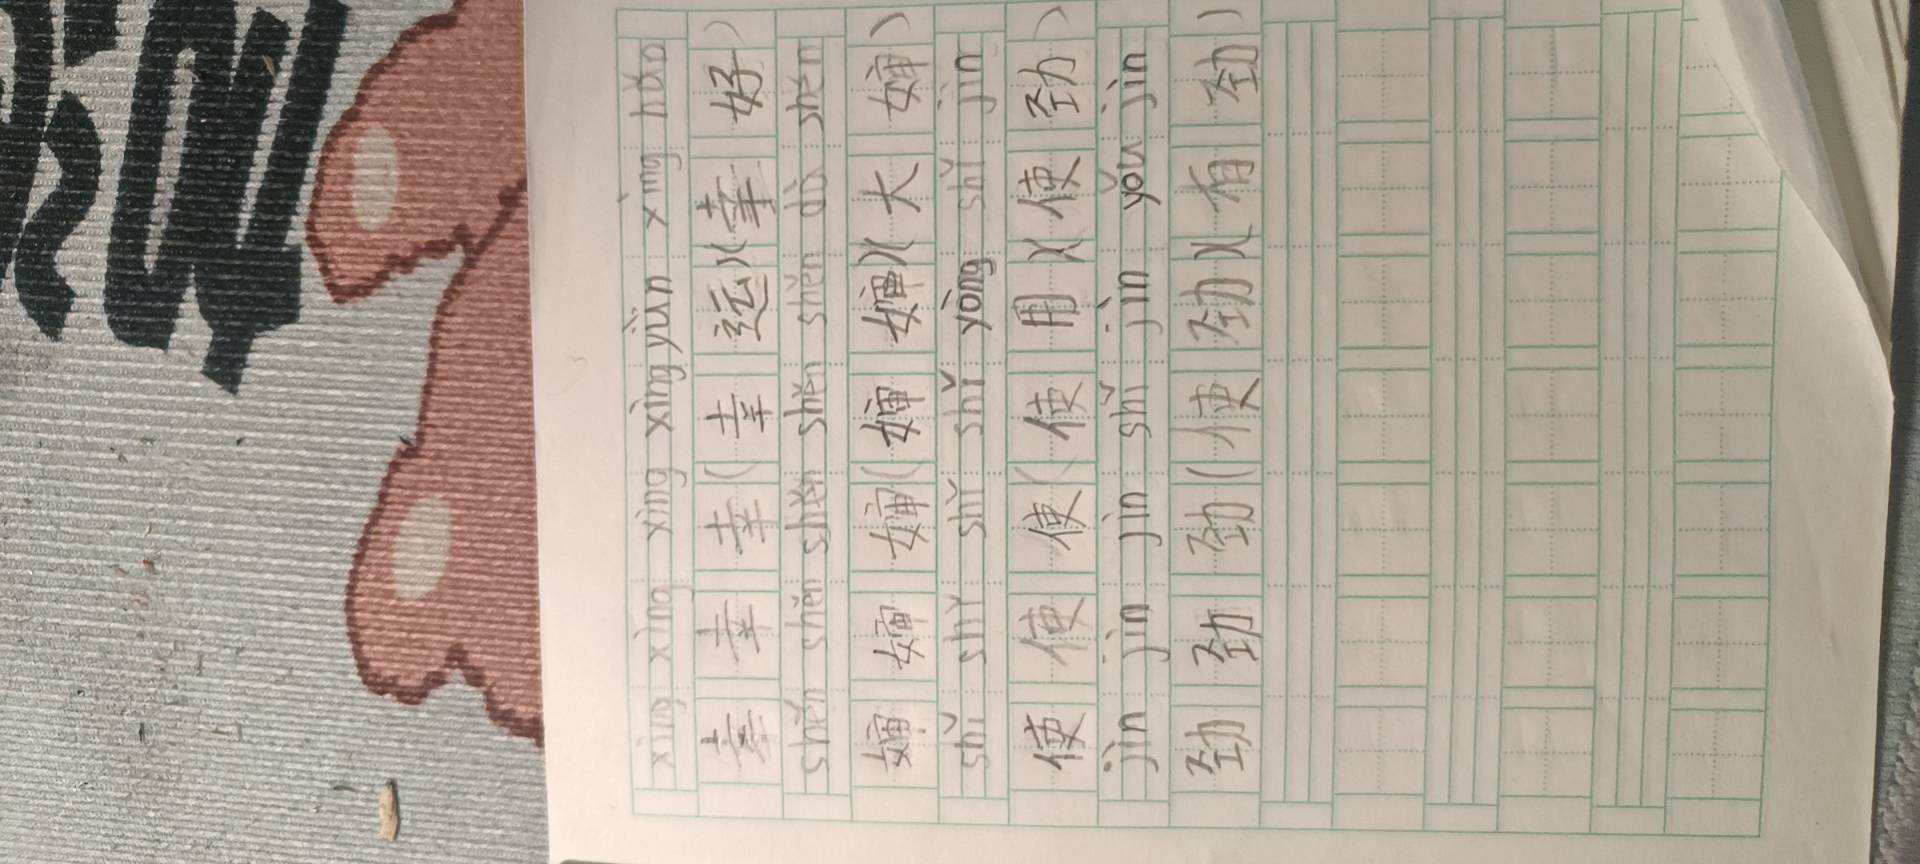 xìng xìng xìng xìng yùn xìng hǎo
幸 幸 幸 ( 幸 运 ) ( 幸 好 )
shěn shěn shěn shěn shěn dà shěn
婶 婶 婶 ( 婶 婶 ) ( 大 婶 )
shǐ shǐ shǐ shǐ yòng shǐ jìn
使 使 使 ( 使 用 ) ( 使 劲 )
jìn jìn jìn shǐ jìn yǒu jìn
劲 劲 劲 ( 使 劲 ) ( 有 劲 )